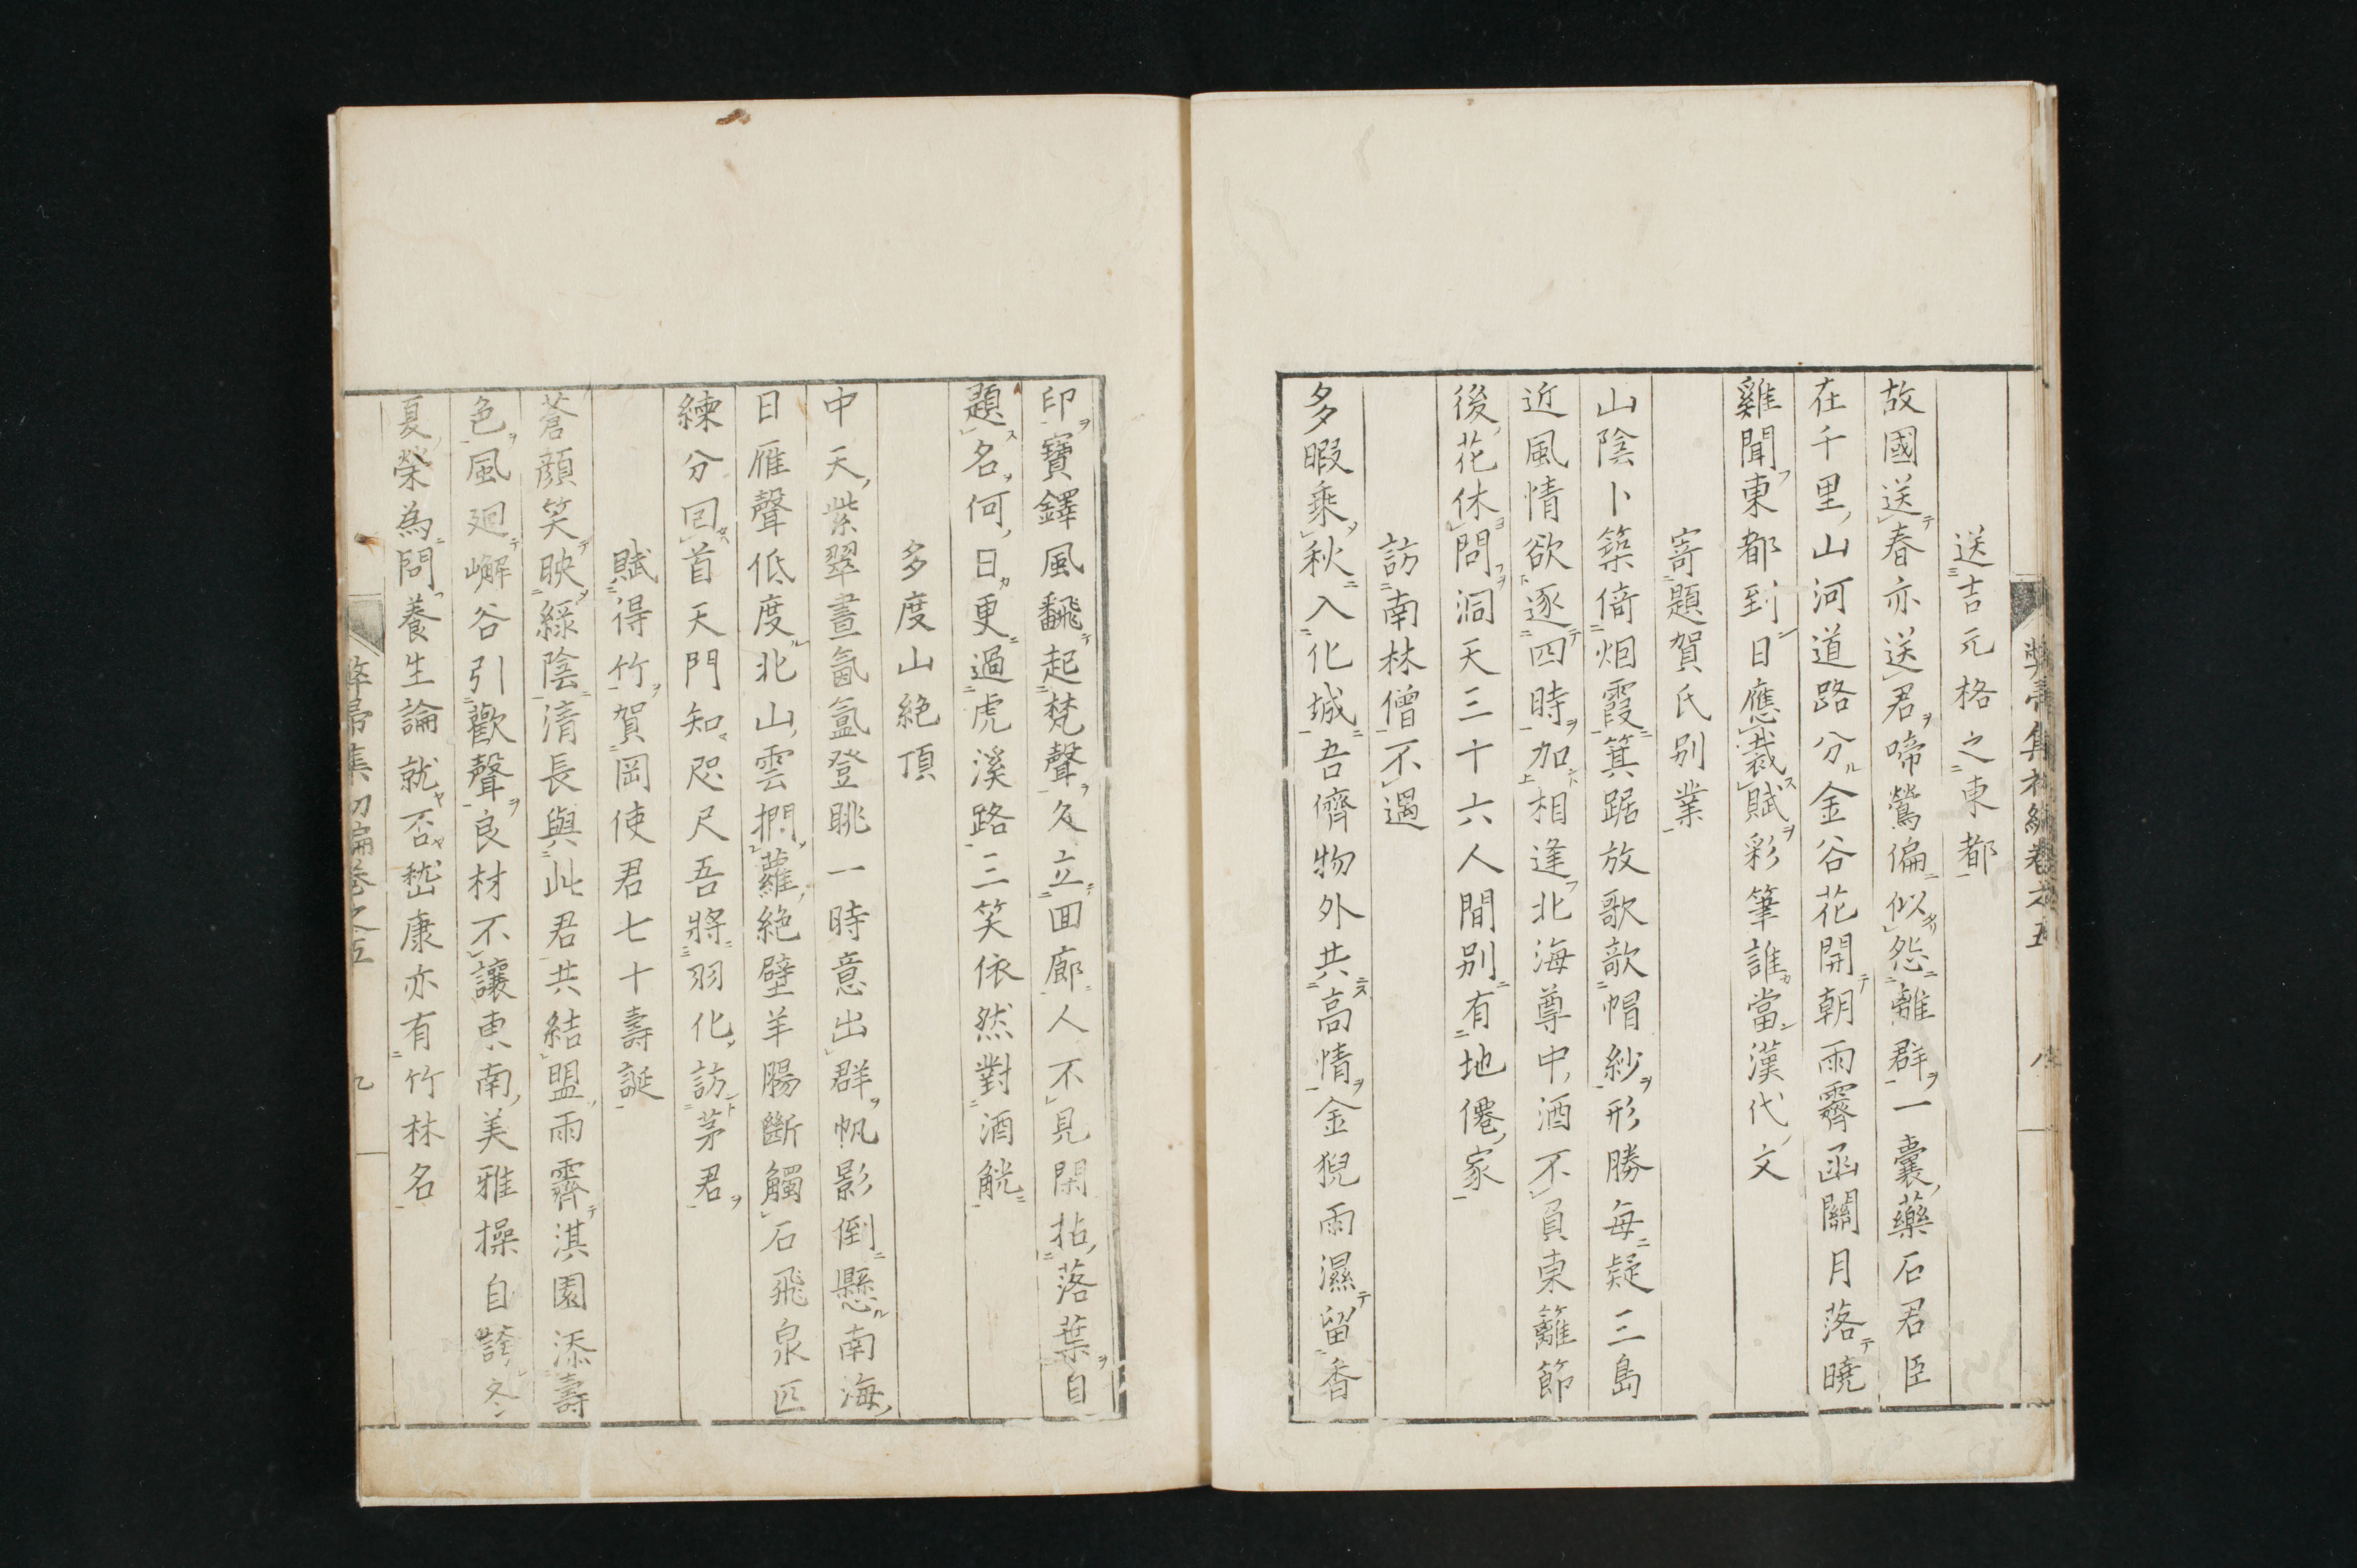 送吉元格之東都
故國送春亦送君啼鶯偏似怨離群一囊藥石君臣
在千里山河道路分金谷花開朝雨霽函關月落曉
雞聞東都到日應裁賦彩筆誰當漢代文
寄題賀氏別業
山陰卜築倚烟霞箕踞放歌欹帽紗形勝每疑三島
近風情欲逐四時加相逢北海尊中酒不負東籬節
後花休問洞天三十六人間別有地僊家
訪南林僧不遇
多暇乘秋入化城吾儕物外共高情金猊雨濕留香
印寶鐸風飜起梵聲久立回廊人不見閑拈落葉自
題名何日更過虎溪路三笑依然對酒觥
多度山絕頂
中天紫翠晝氤氳登眺一時意出群帆影倒懸南海
日雁聲低度北山雲捫蘿絕壁羊腸斷觸石飛泉匹
練分回首天門知咫尺吾將羽化訪茅君
賦得竹賀岡使君七十壽誕
蒼顏笑映綠陰清長與此君共結盟雨霽淇園添壽
色風廻嶰谷引歡聲良材不讓東南美雅操自誇冬
夏榮為問養生論就否嵆康亦有竹林名
集初編卷之五 九